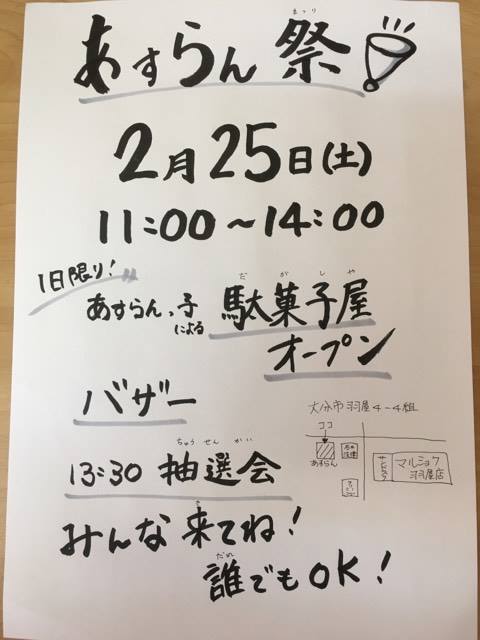 あすらん 祭!
まつり
2月25日(土)
11:00〜14:00
1日限り!
あすらんっ子による 駄菓子屋
だがしや
オープン
バザー
大分市羽屋4-4組
ココ
あすらん
マルショク
羽屋店
ちゅうせんかい
13:30 抽選会
みんな来てね!
き
だれ
誰でもOK!